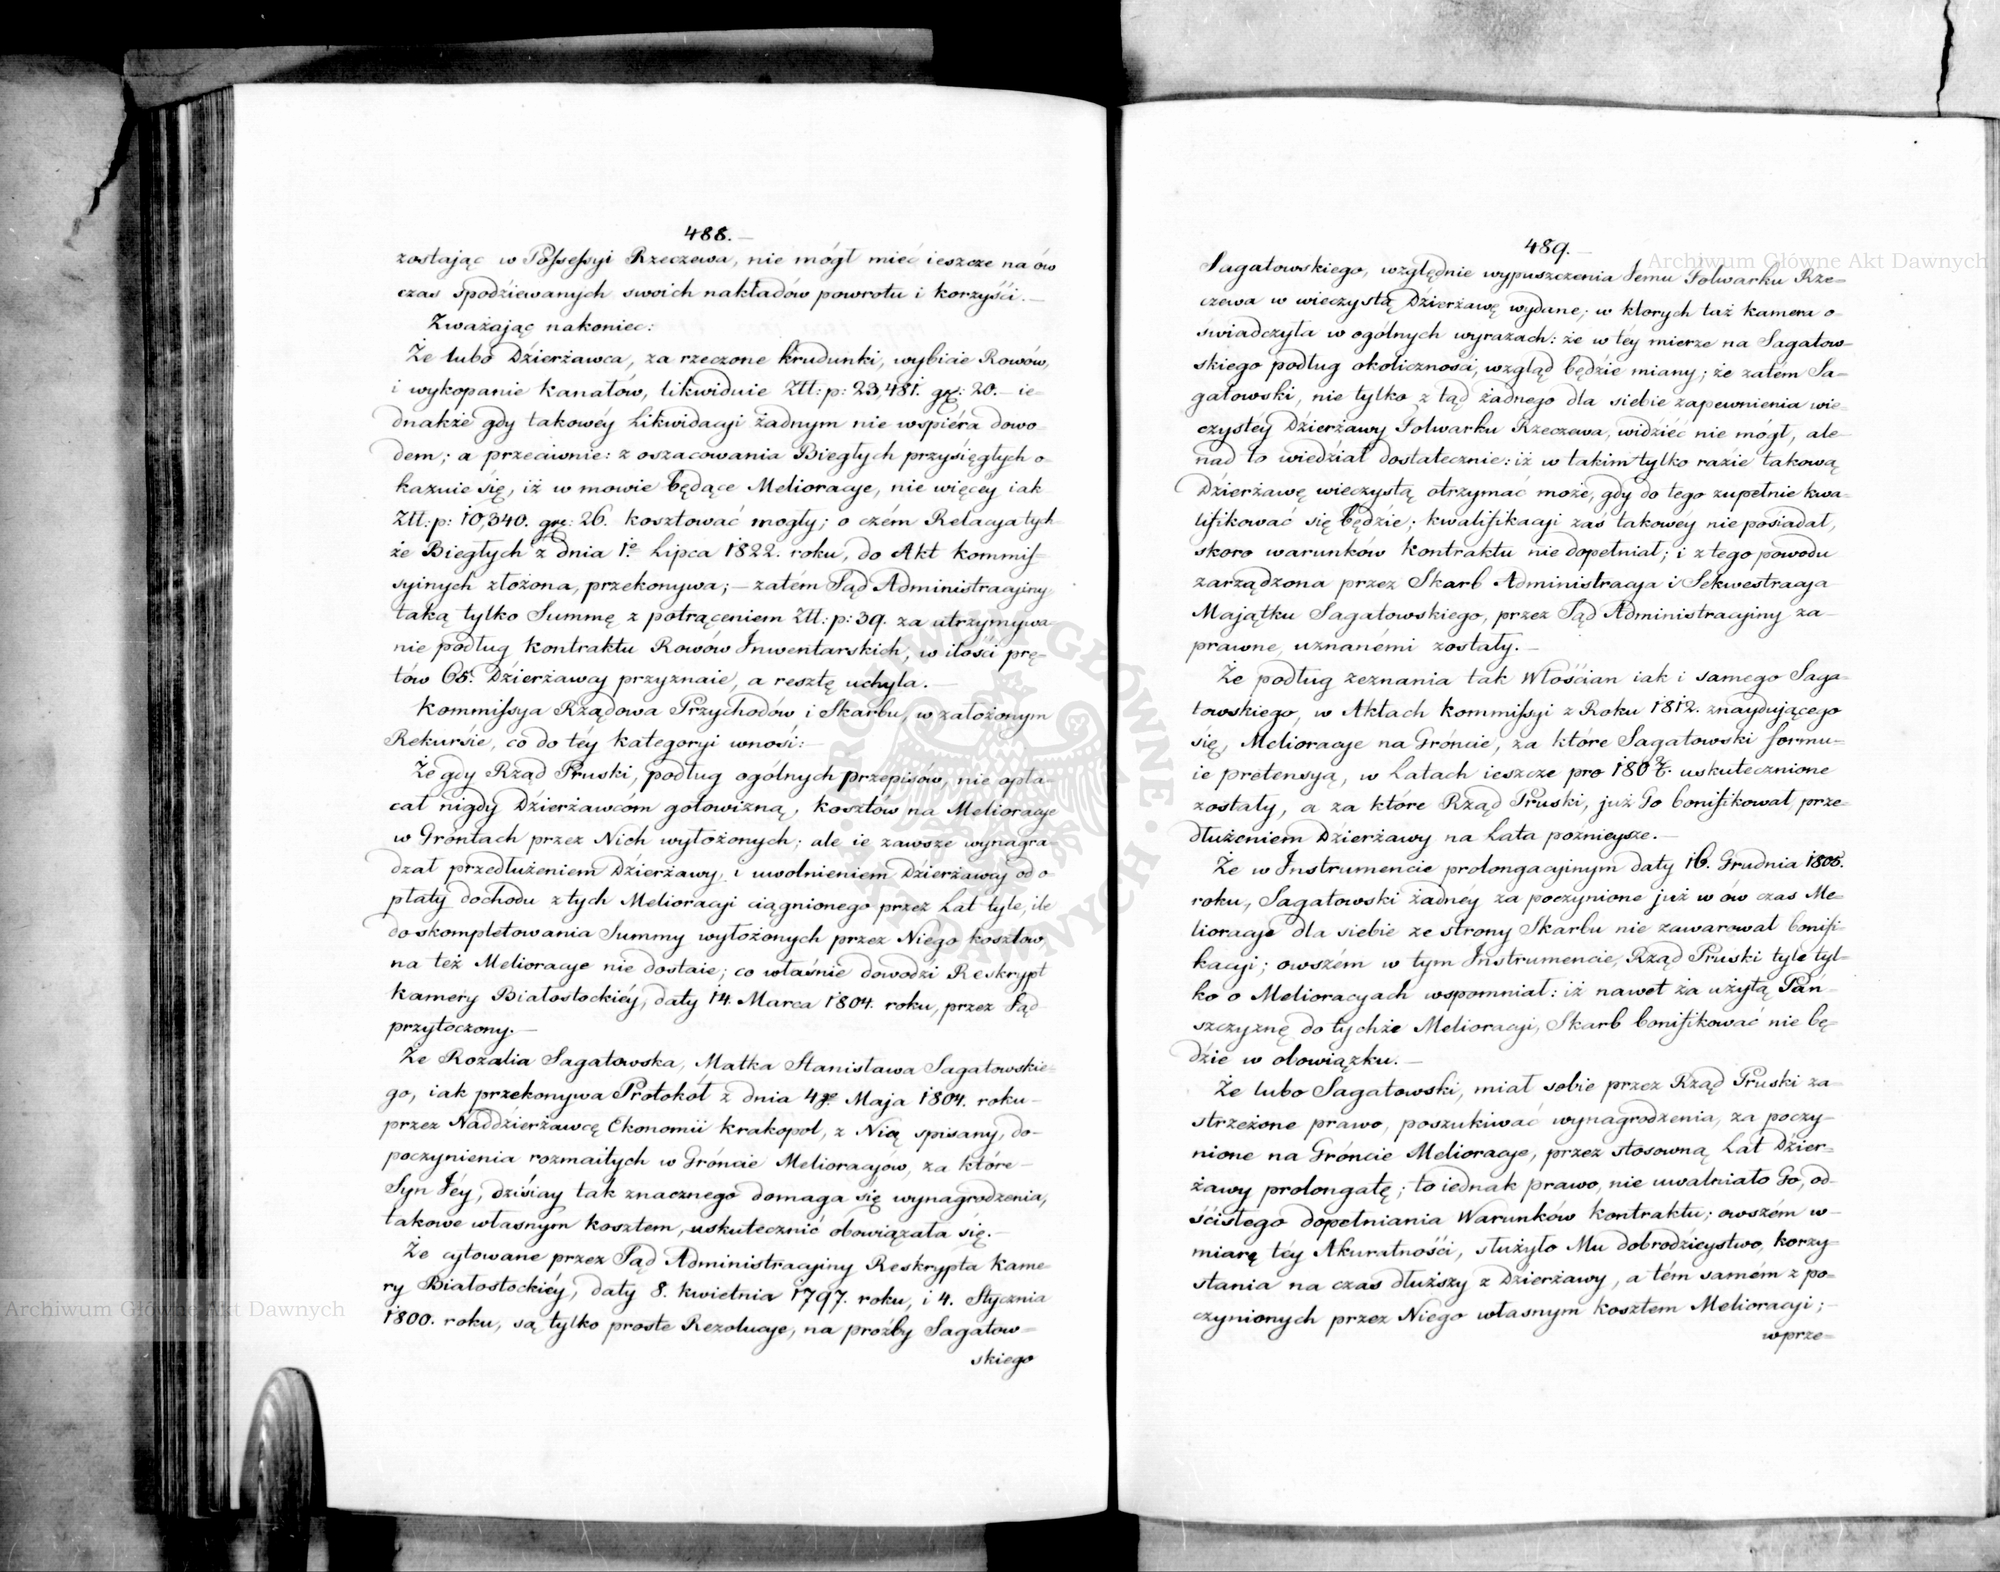 488.
zostając w Possessyi Rzeczewa, nie mógł mieć ieszcze na ów
czas spodziewanych swoich nakładów powrotu i korzyści. —
Zważaiąc nakoniec:
Że lubo Dzierżawca, za rzeczone Krudunki, wybicie Rowów,
i wykopanie Kanałów, likwiduie Ztt: p: 23,481. gr: 20. — ie-
dnakże gdy takowéy Likwidacyi żadnym nie wspiéra dowo-
dem; a przeciwnie: z oszacowania Biegłych przysięgłych o-
kazuie się, iż w mowie będące Melioracye, nie więcéy iak
Ztt: p: 10,340. gr: 26. kosztować mogły; o czém Relacya tych-
że Biegłych z dnia 1e Lipca 1822. roku, do Akt Kommis-
syinych złożona, przekonywa; — zatém Sąd Administracyiny
taką tylko Summę z potrąceniem Ztt: p: 39. za utrzymywa-
nie podług Kontraktu Rowów Inwentarskich, w ilości prę-
tów 65. Dzierżawcy przyznaie, a resztę uchyla. —
Kommissya Rządowa Przychodów i Skarbu, w założonym
Rekursie, co do téy kategoryi wnosi: —
Że gdy Rząd Pruski, podług ogólnych przepisów, nie opła-
cał nigdy Dzierżawcóm gotowizną, kosztów na Melioracye
w Gróntach przez Nich wyłożonych; ale ie zawsze wynagra-
dzał przedłużeniem Dzierżawy, i uwolnieniem Dzierżawcy od o-
płaty dochodu z tych Melioracyi ciągnionego przez Lat tyle, ile
do skompletowania Summy wyłożonych przez Niego kosztow,
na też Melioracye nie dostaie; co właśnie dowodzi Reskrypt
Kamery Białostockiéy, daty 14. Marca 1804. roku, przez Sąd
przytoczony. —
Że Rozalia Sagatowska, Matka Stanisława Sagatowskie-
go, iak przekonywa Protokół z dnia 4go Maja 1804. roku —
przez Naddzierżawcę Ekonomii Krakopol, z Nią spisany, do-
poczynienia rozmaitych w Gróncie Melioracyów, za które —
Syn Jéy, dzisiay tak znacznego domaga się wynagrodzenia,
takowe własnym kosztem, uskutecznić obowiązała się. —
Że cytowane przez Sąd Administracyiny Reskrypta Kame-
ry Białostockiéy, daty 8. Kwietnia 1797. roku, i 4. Stycznia
1800. roku, są tylko proste Rezolucye, na proźby Sagatow-
skiego
489. —
Sagatowskiego, względnie wypuszczenia Jemu Folwarku Rze-
czewa w wieczystą Dzierżawę wydane; w ktorych taż Kamera o-
świadczyła w ogólnych wyrazach: że w téy mierze na Sagatow-
skiego podług okoliczności, wzgląd będzie miany; że zatém Sa-
gatowski, nie tylko z tąd żadnego dla siebie zapewnienia wie-
czystéy Dzierżawy Folwarku Rzeczewa, widzieć nie mógł, ale
nad to wiedział dostatecznie: iż w takim tylko razie takową
Dzierżawę wieczystą otrzymać może, gdy do tego zupełnie kwa-
lifikować się będzie; kwalifikacyi zaś takowéy nie posiadał,
skoro warunków Kontraktu nie dopełniał; i z tego powodu
zarządzona przez Skarb Administracya i Sekwestracya
Maiątku Sagatowskiego, przez Sąd Administracyiny za-
prawne, uznanémi zostały. —
Że podług zeznania tak Włościan iak i samego Saga-
towskiego, w Aktach Kommissyi z Roku 1812. znayduiącego
się, Melioracye na Gróncie, za które Sagatowski formu-
ie pretensyą, w Latach ieszcze pro 180 uskutecznione
zostały, a za które Rząd Pruski, już Go bonifikował, prze-
dłużeniem Dzierżawy na Lata poźnieysze. —
Że w Instrumencie prolongacyinym daty 16. Grudnia 1805.
roku, Sagatowski żadnéy za poczynione już w ów czas Me-
lioracye dla siebie ze strony Skarbu nie zawarował bonifi-
kacyi; owszem w tym Instrumencie, Rząd Pruski tyle tyl-
ko o Melioracyach wspomniał: iż nawet za użytą Pań-
szczyznę do tychże Melioracyi, Skarb bonifikować nie bę-
dzie w obowiązku. —
Że lubo Sagatowski, miał sobie przez Rząd Pruski za-
strzeżone prawo, poszukiwać wynagrodzenia, za poczy-
nione na Gróncie Melioracye, przez stosowną Lat Dzier-
żawy prolongatę; to iednak prawo, nie uwalniało Go, od-
ścisłego dopełniania Warunków Kontraktu; owszém w-
miarę téy Akuratności, służyło Mu dobrodzieystwo, korzy-
stania na czas dłuższy z Dzierżawy, a tém samém z po-
czynionych przez Niego własnym kosztem Melioracyi; —
wprze-
Archiwum Główne Akt Dawnych
Archiwum Główne Akt Dawnych
ARCHIWUM GŁÓWNE AKT DAWNYCH